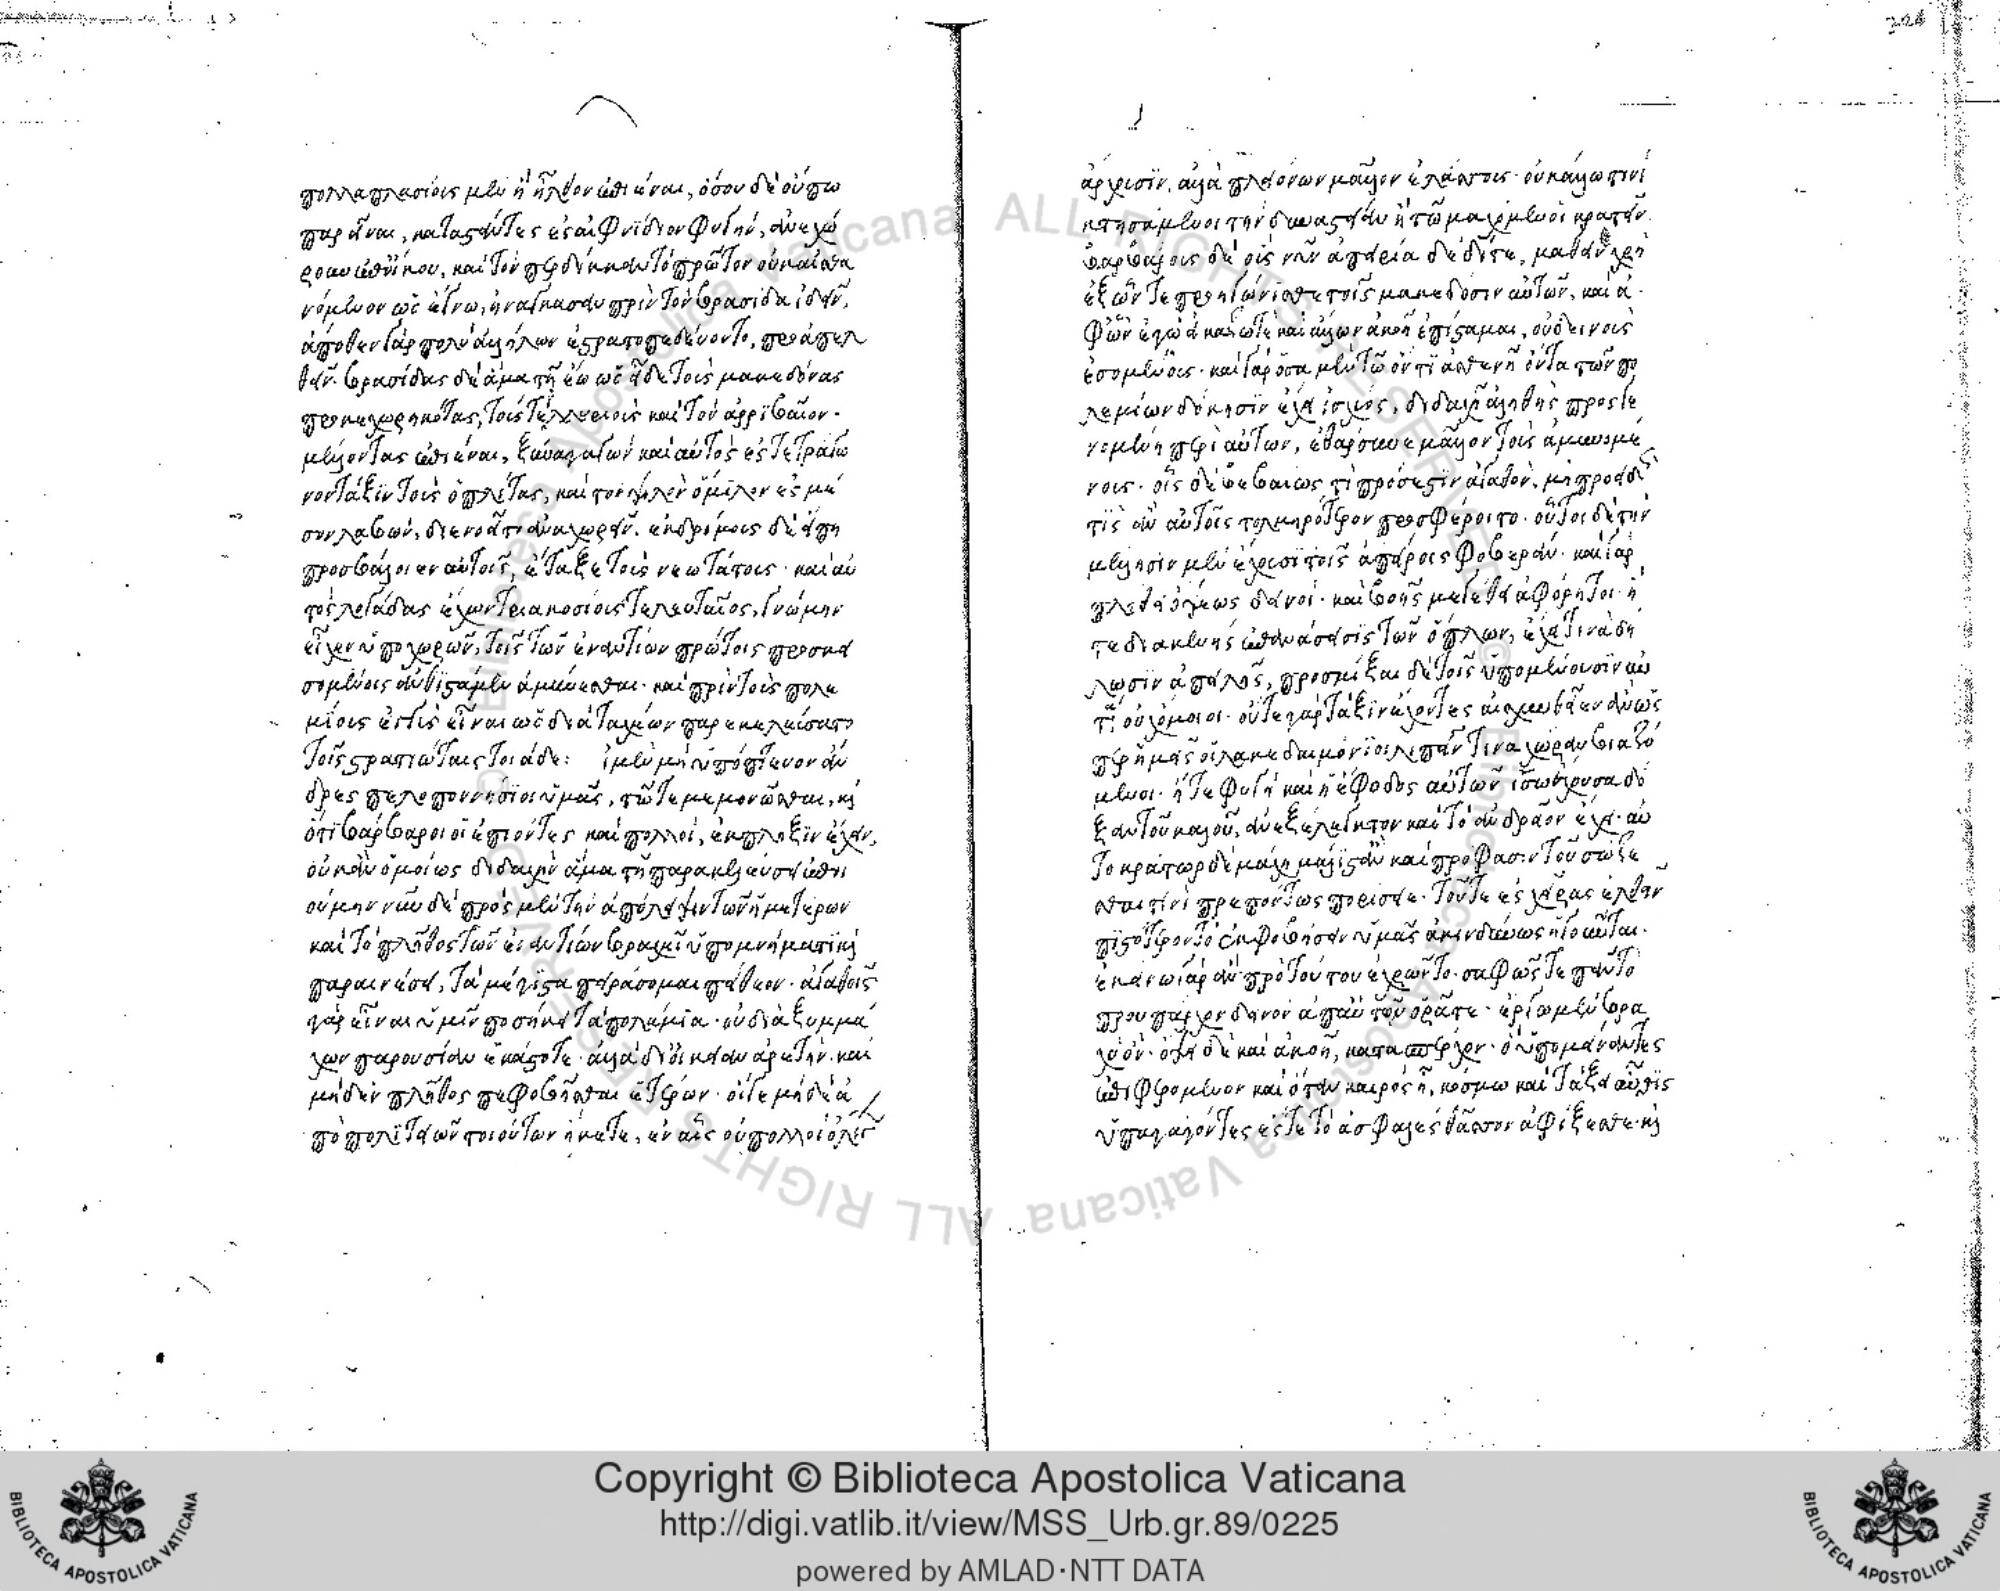 πολλαπλασίους μὲν ἢ ἦλθον ἐπιέναι, ὅσον δὲ οὔπω
παρεῖναι, καταστάντες ἐς αἰφνίδιον φυγὴν, ἀνεχώ
ρουν ἐπ' οἴκου, καὶ τὸν περδίκκαν τὸ πρῶτον οὐκ αἰσθα
νόμενον ὡς ἔγνω, ἠνάγκασαν πρὶν τὸν βρασίδα ἰδεῖν,
ἄποθεν γὰρ πολὺ ἀλλήλων ἐστρατοπεδεύοντο, προαπελ
θεῖν. βρασίδας δὲ ἅμα τῇ ἕῳ ὡς εἶδε τοὺς μακεδόνας
προκεχωρηκότας, τούς τε ἰλλυριοὺς καὶ τὸν ἀρριβαῖον
μέλλοντας ἐπιέναι, ξυναγαγὼν καὶ αὐτὸς ἐς τετράγω
νον τάξιν τοὺς ὁπλίτας, καὶ τὸν ψιλὸν ὅμιλον ἐς μέ
σον λαβὼν, διενοεῖτο ἀναχωρεῖν. ἐκδρόμους δὲ εἴ πη
προσβάλοιεν αὐτοῖς, ἔταξε τοὺς νεωτάτους· καὶ αὐ
τὸς λογάδας ἔχων τριακοσίους τελευταῖος, γνώμην
εἶχεν ὑποχωρῶν, τοῖς τῶν ἐναντίων πρώτοις προσκει
σομένοις ἀνθιστάμενος ἀμύνεσθαι· καὶ πρὶν τοὺς πολε
μίους ἐγγὺς εἶναι ὡς διὰ ταχέων παρεκελεύσατο
τοῖς στρατιώταις τοιάδε: εἰ μὲν μὴ ὑπόπτευον ἄν
δρες πελοποννήσιοι ὑμᾶς, τῷ τε μεμονῶσθαι, καὶ
ὅτι βάρβαροι οἱ ἐπιόντες καὶ πολλοί, ἔκπληξιν ἔχειν,
οὐκ ἂν ὁμοίως διδαχὴν ἅμα τῇ παρακελεύσει ἐποι
ούμην νῦν δὲ πρὸς μὲν τὴν ἀπόλειψιν τῶν ἡμετέρων
καὶ τὸ πλῆθος τῶν ἐναντίων βραχεῖ ὑπομνήματι καὶ
παραινέσει, τὰ μέγιστα πειράσομαι πείθειν· ἀγαθοῖς
γὰρ εἶναι ὑμῖν προσήκει τὰ πολέμια· οὐ διὰ ξυμμά
χων παρουσίαν ἑκάστοτε· ἀλλὰ δι' οἰκείαν ἀρετήν· καὶ
μηδὲν πλῆθος πεφοβῆσθαι ἑτέρων· οἵ γε μηδὲ ἀ
πὸ πολιτειῶν τοιούτων ἥκετε, ἐν αἷς οὐ πολλοὶ ὀλίγων
ἄρχουσιν, ἀλλὰ πλειόνων μᾶλλον ἐλάσσους· οὐκ ἄλλῳ τινὶ
κτησάμενοι τὴν δυναστείαν ἢ τῷ μαχόμενοι κρατεῖν.
βαρβάρους δὲ οὓς νῦν ἀπειρίᾳ δέδιτε, μαθεῖν χρὴ
ἐξ ὧν τε προηγώνισθε τοῖς μακεδόσιν αὐτῶν, καὶ ἀ
φ' ὧν ἐγὼ εἰκάζω τε καὶ ἄλλων ἀκοῇ ἐπίσταμαι, οὐ δεινοὺς
ἐσομένους· καὶ γὰρ ὅσα μὲν τῷ ὄντι ἀσθενῆ ὄντα τῶν πο
λεμίων δόκησιν ἔχει ἰσχύος, διδαχὴ ἀληθὴς προσγε
νομένη περὶ αὐτῶν, ἐθάρσυνε μᾶλλον τοὺς ἀμυνομέ
νους· οἷς δὲ βεβαίως τι πρόσεστιν ἀγαθὸν, μὴ προειδώς
τις ἂν αὐτοῖς τολμηρότερον προσφέροιτο· οὗτοι δὲ τὴν
μέλλησιν μὲν ἔχουσι τοῖς ἀπείροις φοβεράν· καὶ γὰρ
πλήθει ὄψεως δεινοί· καὶ βοῆς μεγέθει ἀφόρητοι· ἥ
τε διὰ κενῆς ἐπανάσεισις τῶν ὅπλων, ἔχει τινὰ δή
λωσιν ἀπειλῆς, προσμίξαι δὲ τοῖς ὑπομένουσιν αὐ
τὰ οὐχ ὅμοιοι· οὔτε γὰρ τάξιν ἔχοντες αἰσχυνθεῖεν ἂν ὥς
περ ἡμᾶς οἱ λακεδαιμόνιοι λιπεῖν τινα χώραν βιαζό
μενοι· ἥ τε φυγὴ καὶ ἡ ἔφοδος αὐτῶν ἴσην ἔχουσα δό
ξαν τοῦ καλοῦ, ἀνεξέλεγκτον καὶ τὸ ἀνδρεῖον ἔχει· αὐ
τοκράτωρ δὲ μάχη μάλιστ' ἂν καὶ πρόφασιν τοῦ σώζε
σθαι τινὶ πρεπόντως πορίσειε· τοῦ τε ἐς χεῖρας ἐλθεῖν
πιστότερον τὸ ἐκφοβήσειν ὑμᾶς ἀκινδύνως ἡγοῦνται·
ἐκείνῳ γὰρ ἂν πρὸ τούτου ἐχρῶντο· σαφῶς τε πᾶν τὸ
προϋπάρχον δεινὸν ἀπ' αὐτῶν ὁρᾶτε· ἔργῳ μὲν βρα
χὺ ὄν· ὄψει δὲ καὶ ἀκοῇ, κατασπέρχον· ὃ ὑπομείναντες
ἐπιφερόμενον καὶ ὅταν καιρὸς ᾖ, κόσμῳ καὶ τάξει αὖθις
ὑπαγαγόντες ἔς τε τὸ ἀσφαλὲς θᾶσσον ἀφίξεσθε· καὶ
Copyright © Biblioteca Apostolica Vaticana
http://digi.vatlib.it/view/MSS_Urb.gr.89/0225
powered by AMLAD·NTT DATA